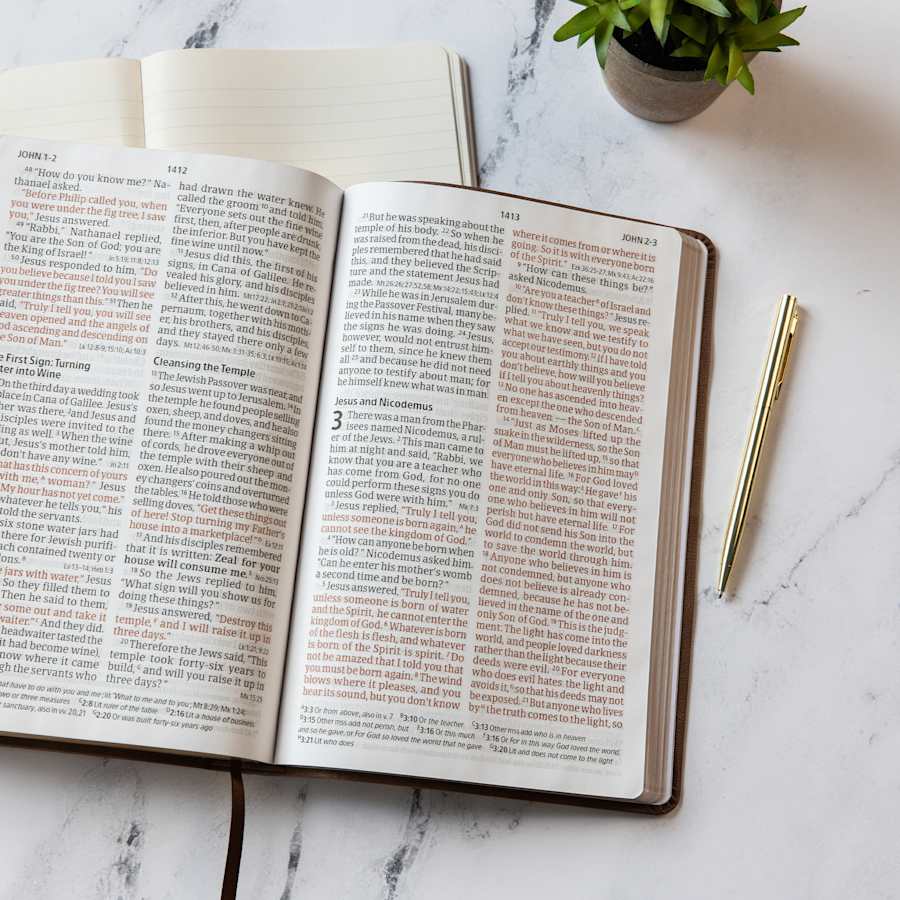 JOHN 1-2
1412
48 “How do you know me?” Na-
thanael asked.
“Before Philip called you, when
you were under the fig tree, I saw
you,” Jesus answered.
49 “Rabbi,” Nathanael replied,
“You are the Son of God; you are
the King of Israel!”
50 Jesus responded to him, “Do
you believe because I told you I saw
you under the fig tree? You will see
greater things than this.” 51 Then he
said, “Truly I tell you, you will see
heaven opened and the angels of
God ascending and descending on
the Son of Man.”
The First Sign: Turning
Water into Wine
On the third day a wedding took
place in Cana of Galilee. Jesus’s
mother was there, 2 and Jesus and
disciples were invited to the
wedding as well. 3 When the wine
out, Jesus’s mother told him,
don’t have any wine.”
What has this concern of yours
with me, woman?” Jesus
“My hour has not yet come.”
whatever he tells you,” his
told the servants.
six stone water jars had
there for Jewish purifi-
Each contained twenty or
gallons.
jars with water,” Jesus
So they filled them to
Then he said to them,
some out and take it
And they did.
headwaiter tasted the
it had become wine),
know where it came
though the servants who
had drawn the water knew. He
called the groom 10 and told him,
“Everyone sets out the fine wine
first, then, after people are drunk,
the inferior. But you have kept the
fine wine until now.”
11 Jesus did this, the first of his
signs, in Cana of Galilee. He re-
vealed his glory, and his disciples
believed in him.
12 After this, he went down to Ca-
pernaum, together with his moth-
er, his brothers, and his disciples,
and they stayed there only a few
days.
Cleansing the Temple
13 The Jewish Passover was near, and
so Jesus went up to Jerusalem. 14 In
the temple he found people selling
oxen, sheep, and doves, and he also
found the money changers sitting
there. 15 After making a whip out
of cords, he drove everyone out of
the temple with their sheep and
oxen. He also poured out the mon-
ey changers’ coins and overturned
the tables. 16 He told those who were
selling doves, “Get these things out
of here! Stop turning my Father’s
house into a marketplace!”
17 And his disciples remembered
that it is written: Zeal for your
house will consume me.
18 So the Jews replied to him,
“What sign will you show us for
doing these things?”
19 Jesus answered, “Destroy this
temple, and I will raise it up in
three days.”
20 Therefore the Jews said, “This
temple took forty-six years to
build, and will you raise it up in
three days?”
what have to do with you and me; lit ‘What to me and to you’; Mt 8:29; Mk 1:24;
two or three measures 2:8 Lit ruler of the table 2:16 Lit a house of business
sanctuary, also in vv. 20,21 2:20 Or was built forty-six years ago
1413
JOHN 2-3
21 But he was speaking about the
temple of his body. 22 So when he
was raised from the dead, his disci-
ples remembered that he had said
this, and they believed the Scrip-
ture and the statement Jesus had
made.
23 While he was in Jerusalem dur-
ing the Passover Festival, many be-
lieved in his name when they saw
the signs he was doing. 24 Jesus,
however, would not entrust him-
self to them, since he knew them
all 25 and because he did not need
anyone to testify about man; for
he himself knew what was in man.
Jesus and Nicodemus
3 There was a man from the Phar-
isees named Nicodemus, a rul-
er of the Jews. 2 This man came to
him at night and said, “Rabbi, we
know that you are a teacher who
has come from God, for no one
could perform these signs you do
unless God were with him.”
3 Jesus replied, “Truly I tell you,
unless someone is born again, he
cannot see the kingdom of God.”
4 “How can anyone be born when
he is old?” Nicodemus asked him.
“Can he enter his mother’s womb
a second time and be born?”
5 Jesus answered, “Truly I tell you,
unless someone is born of water
and the Spirit, he cannot enter the
kingdom of God. 6 Whatever is born
of the flesh is flesh, and whatever
is born of the Spirit is spirit. 7 Do
not be amazed that I told you that
you must be born again. 8 The wind
blows where it pleases, and you
hear its sound, but you don’t know
where it comes from or where it is
going. So it is with everyone born
of the Spirit.”
9 “How can these things be?”
asked Nicodemus.
10 “Are you a teacher of Israel and
don’t know these things?” Jesus re-
plied. 11 “Truly I tell you, we speak
what we know and we testify to
what we have seen, but you do not
accept our testimony. 12 If I have told
you about earthly things and you
don’t believe, how will you believe
if I tell you about heavenly things?
13 No one has ascended into heav-
en except the one who descended
from heaven — the Son of Man.
14 “Just as Moses lifted up the
snake in the wilderness, so the Son
of Man must be lifted up, 15 so that
everyone who believes in him may
have eternal life. 16 For God loved
the world in this way: He gave his
one and only Son, so that every-
one who believes in him will not
perish but have eternal life. 17 For
God did not send his Son into the
world to condemn the world, but
to save the world through him.
18 Anyone who believes in him is
not condemned, but anyone who
does not believe is already con-
demned, because he has not be-
lieved in the name of the one and
only Son of God. 19 This is the judg-
ment: The light has come into the
world, and people loved darkness
rather than the light because their
deeds were evil. 20 For everyone
who does evil hates the light and
avoids it, so that his deeds may not
be exposed. 21 But anyone who lives
by the truth comes to the light, so
3:3 Or from above, also in v. 7 3:10 Or the teacher 3:13 Other mss add who is in heaven
3:15 Other mss add not perish, but 3:16 Or this much 3:16 Or For in this way God loved the world,
and so he gave, or For God so loved the world that he gave 3:20 Lit and does not come to the light
3:21 Lit who does